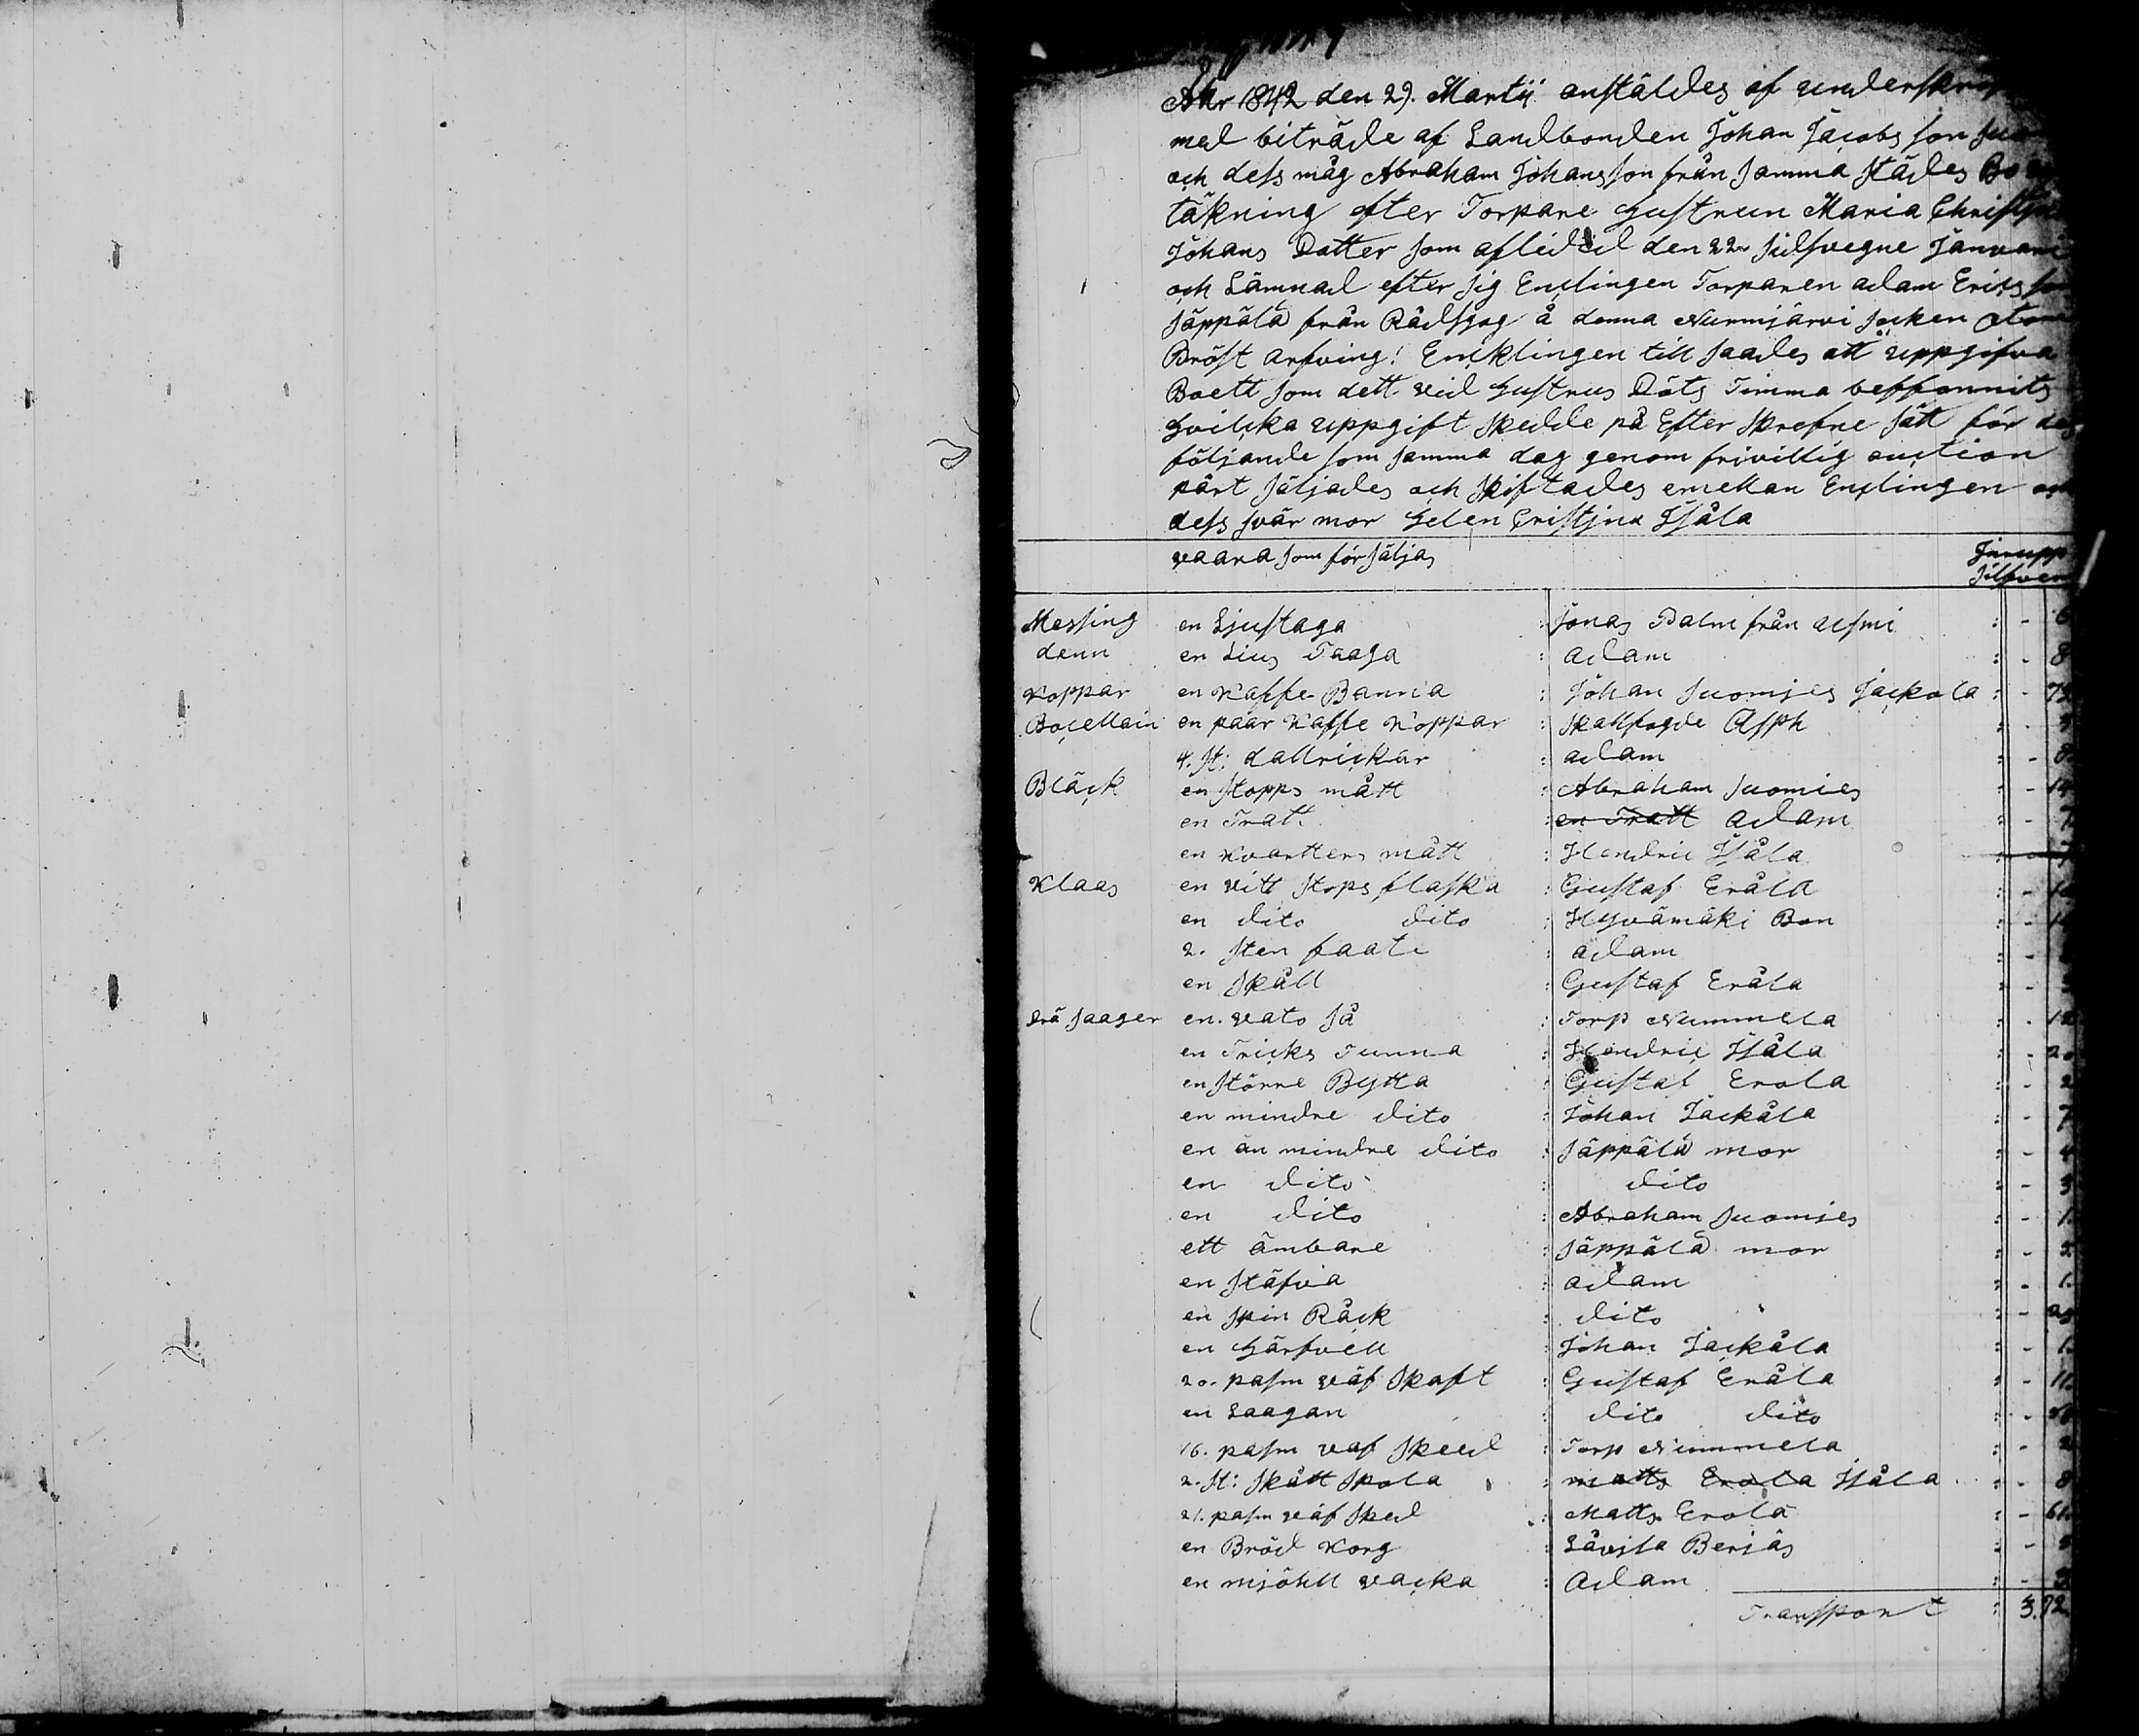 Åhr 1842 den 29. Martii anställdes af
med biträde af Landbonden Johan Jacobs son
och dess måg Abraham Johansson från samma städes
täkning efter Torpare Hustrun Maria
Johans Dotter som afledid den 22 sidsvegne Januari
och Lämnad efter sig Enclingen Torparen adam Erics
Jäppälä från Rådsgog å denna Nurmjärvi socken
Bröst arfving: Encklingen till saades att uppgifva
Boett som dett vid Hustrus Döts Timma beffannits
Hvilcka uppgift skedde på Efter skrefne sätt för
följande som samma dag genom frivillig auction
pårt säljades och skiftades emellan Enclingen
dess svär mor Helen Cristjna Isåla
vaara som försäljas
Messing en Ljustaga : Jonas Palm från : - 6
denn en Lius Taaga : adam : - 8
Koppar en Kaffe Panna : Johan Suomies Jackola : -
Bocellain en paar Kaffe Koppar : Skallfogde Asph : -
4. st: dallrickar : adam : - 8
Bläck en stopps mått : Abraham Suomies : - 14
en Tratt : en Tratt adam : - 7
en Kvartters mått : Hendric Isåla : -
Klaas en vitt stops flaska : Gustaf Eråla : -
en dito dito : Hyvämäki Bon : -
2. sten faate : adam : -
en skåll : Gustaf Eråla : -
Trä saager en vato så : Torp Nummela : - 12
en Tricks Tunna : Hendric Isåla : - 20
en större Bytta : Gustaf Erola : - 2
en mindre dito : Johan Jackåla : - 7
en än mindre dito : Jäppälä mor : - 4
en dito : dito : - 3
en dito : Abraham Suomies : - 1.
ett ämbare : Jäppälä mor : - 2
en stäfva : adam : - 1.
en spin Råck : dito : -
en Härfvell : Johan Jackåla : - 1.
20. pasm väf skaft : Gustaf Eråla : - 11
en Laagan : dito dito : -
16. pasm väf skeed : Torp Nummela : - 2
2. st: skått spola : matts Erola Isåla : - 8
21. pasm väf sked : Matts Erola : - 61
en Bröd Korg : Låvisa Berjås : -
en mjöhll vacka : Adam : -
Transport : 3.72